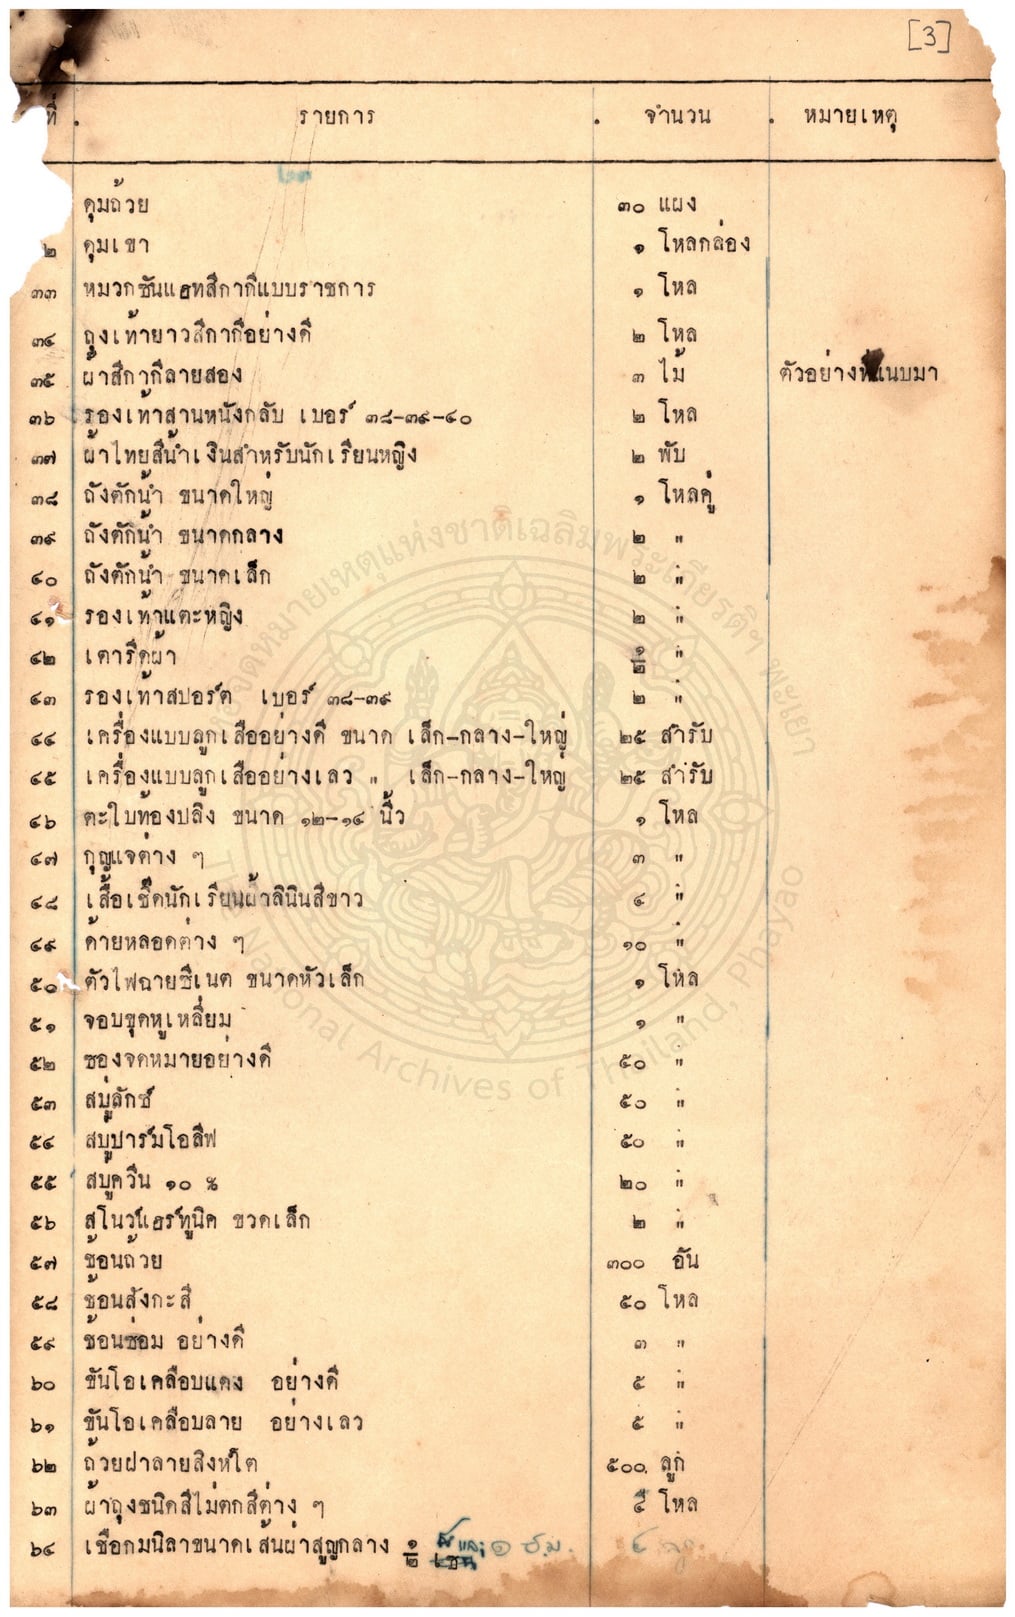 [3]
ที่ . รายการ . จำนวน . หมายเหตุ
ดุมถ้วย ๓๐ แผง
๒ ดุมเขา ๑ โหลกล่อง
๓๓ หมวกชันแฮทสีกากีแบบราชการ ๑ โหล
๓๔ ถุงเท้ายาวสีกากีอย่างดี ๒ โหล
๓๕ ผ้าสีกากีลายสอง ๓ ไม้ ตัวอย่างที่แนบมา
๓๖ รองเท้าสานหนังกลับ เบอร์ ๓๘-๓๙-๔๐ ๒ โหล
๓๗ ผ้าไทยสีน้ำเงินสำหรับนักเรียนหญิง ๒ พับ
๓๘ ถังตักน้ำ ขนาดใหญ่ ๑ โหลคู่
๓๙ ถังตักน้ำ ขนาดกลาง ๒ "
๔๐ ถังตักน้ำ ขนาดเล็ก ๒ "
๔๑ รองเท้าแตะหญิง ๒ "
๔๒ เตารีดผ้า ๑/๒ "
๔๓ รองเท้าสปอร์ต เบอร์ ๓๘-๓๙ ๒ "
๔๔ เครื่องแบบลูกเสืออย่างดี ขนาด เล็ก-กลาง-ใหญ่ ๒๕ สำรับ
๔๕ เครื่องแบบลูกเสืออย่างเลว " เล็ก-กลาง-ใหญ่ ๒๕ สำรับ
๔๖ ตะใบท้องปลิง ขนาด ๑๒-๑๔ นิ้ว ๑ โหล
๔๗ กุญแจต่าง ๆ ๓ "
๔๘ เสื้อเชิ๊ตนักเรียนผ้าลินินสีขาว ๔ "
๔๙ ด้ายหลอดต่าง ๆ ๑๐ "
๕๐ ตัวไฟฉายชีเนต ขนาดหัวเล็ก ๑ โหล
๕๑ จอบขุดหูเหลี่ยม ๑ "
๕๒ ซองจดหมายอย่างดี ๕๐ "
๕๓ สบู่ลักซ์ ๕๐ "
๕๔ สบู่ปาร์มโอลีฟ ๕๐ "
๕๕ สบู่ควีน ๑๐ % ๒๐ "
๕๖ สโนว์แฮร์ทูนิค ขวดเล็ก ๒ "
๕๗ ช้อนถ้วย ๓๐๐ อัน
๕๘ ช้อนสังกะสี ๕๐ โหล
๕๙ ช้อนซ่อม อย่างดี ๓ "
๖๐ ขันโอเคลือบแดง อย่างดี ๕ "
๖๑ ขันโอเคลือบลาย อย่างเลว ๕ "
๖๒ ถ้วยฝาลายสิงห์โต ๕๐๐ ลูก
๖๓ ผ้าถุงชนิดสีไม่ตกสีต่าง ๆ ๕ โหล
๖๔ เชือกมนิลาขนาดเส้นผ่าสูญกลาง ๑/๒ และ ๑ ซ.ม.
หอจดหมายเหตุแห่งชาติเฉลิมพระเกียรติฯ พะเยา
The National Archives of Thailand, Phayao